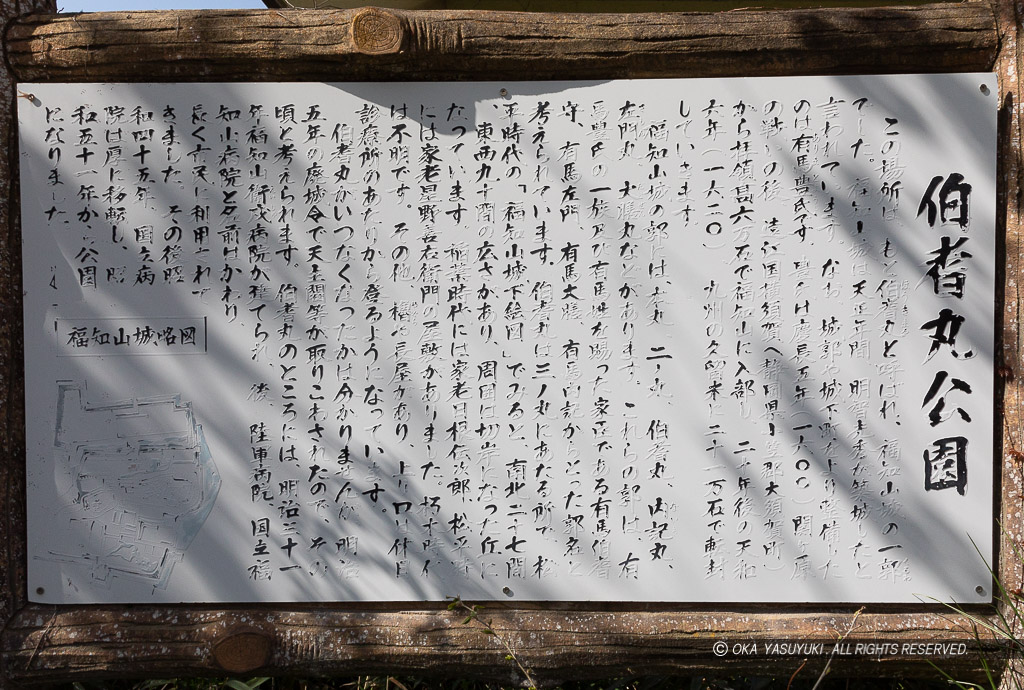 伯耆丸公園
この場所は、もと伯耆丸と呼ばれ、福知山城の一部
でした。福知山城は天正年間、明智光秀が築城したと
言われています。なお、城郭や城下町をより整備した
のは有馬豊氏です。豊氏は慶長五年(一六〇〇)関ヶ原
の戦いの後、遠江国横須賀(静岡県小笠郡大須賀町)
から扶植高六万石で福知山に入部し、二十年後の元和
六年(一六二〇)、九州の久留米に二十一万石で転封
していきます。
福知山城の郭には、本丸、二ノ丸、伯耆丸、内記丸、
左門丸、大膳丸などがあります。これらの郭は、有
馬豊氏の一族及び有馬姓を賜った家臣である有馬伯耆
守、有馬左門、有馬大膳、有馬内記からとった郭名と
考えられています。伯耆丸は三ノ丸にあたる所で、松
平時代の「福知山城下絵図」でみると、南北二十七間
、東西九十間の広さがあり、周囲は切岸になった丘に
なっています。稲葉時代には家老日根伝次郎、松平時
には家老星野善右衛門の屋敷がありました。朽木時代
は不明です。その他、櫓や長屋があり、上り口は付日
診療所のあたりから登るようになっています。
伯耆丸がいつなくなったかは分かりませんが、明治
五年の廃城令で天主閣等が取りこわされたので、その
頃と考えられます。伯耆丸のところには、明治三十一
年福知山衛戍病院が建てられ、後、陸軍病院、国立福
知山病院と名前はかわり、
長く市民に利用されて
きました。その後昭
和四十五年、国立病
院は厚に移転し、昭
和五十一年から公園
になりました。
福知山城略図
© OKA YASUYUKI. ALL RIGHTS RESERVED.